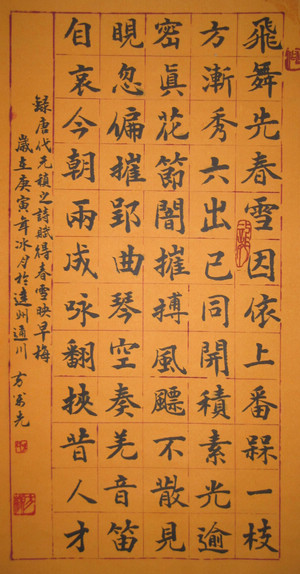 飛舞先春雪因依上番槑一枝
方漸秀六出已同開積素光逾
密眞花節闇摧摶風飃不散見
晛忽偏摧郢曲琴空奏羌音笛
自哀今朝兩成咏翻挾昔人才
録唐代元稹之詩賦得春雪映早梅
歲在庚寅年冰月於達州通川 方萬光